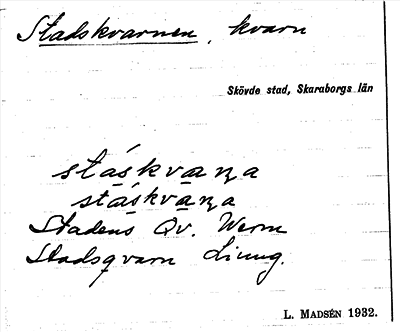 Stadskvarnen, kvarn
Skövde stad, Skaraborgs län
Stadens Qv. Werm
Stadsqvarn Linng.
L. MADSÉN 1932.